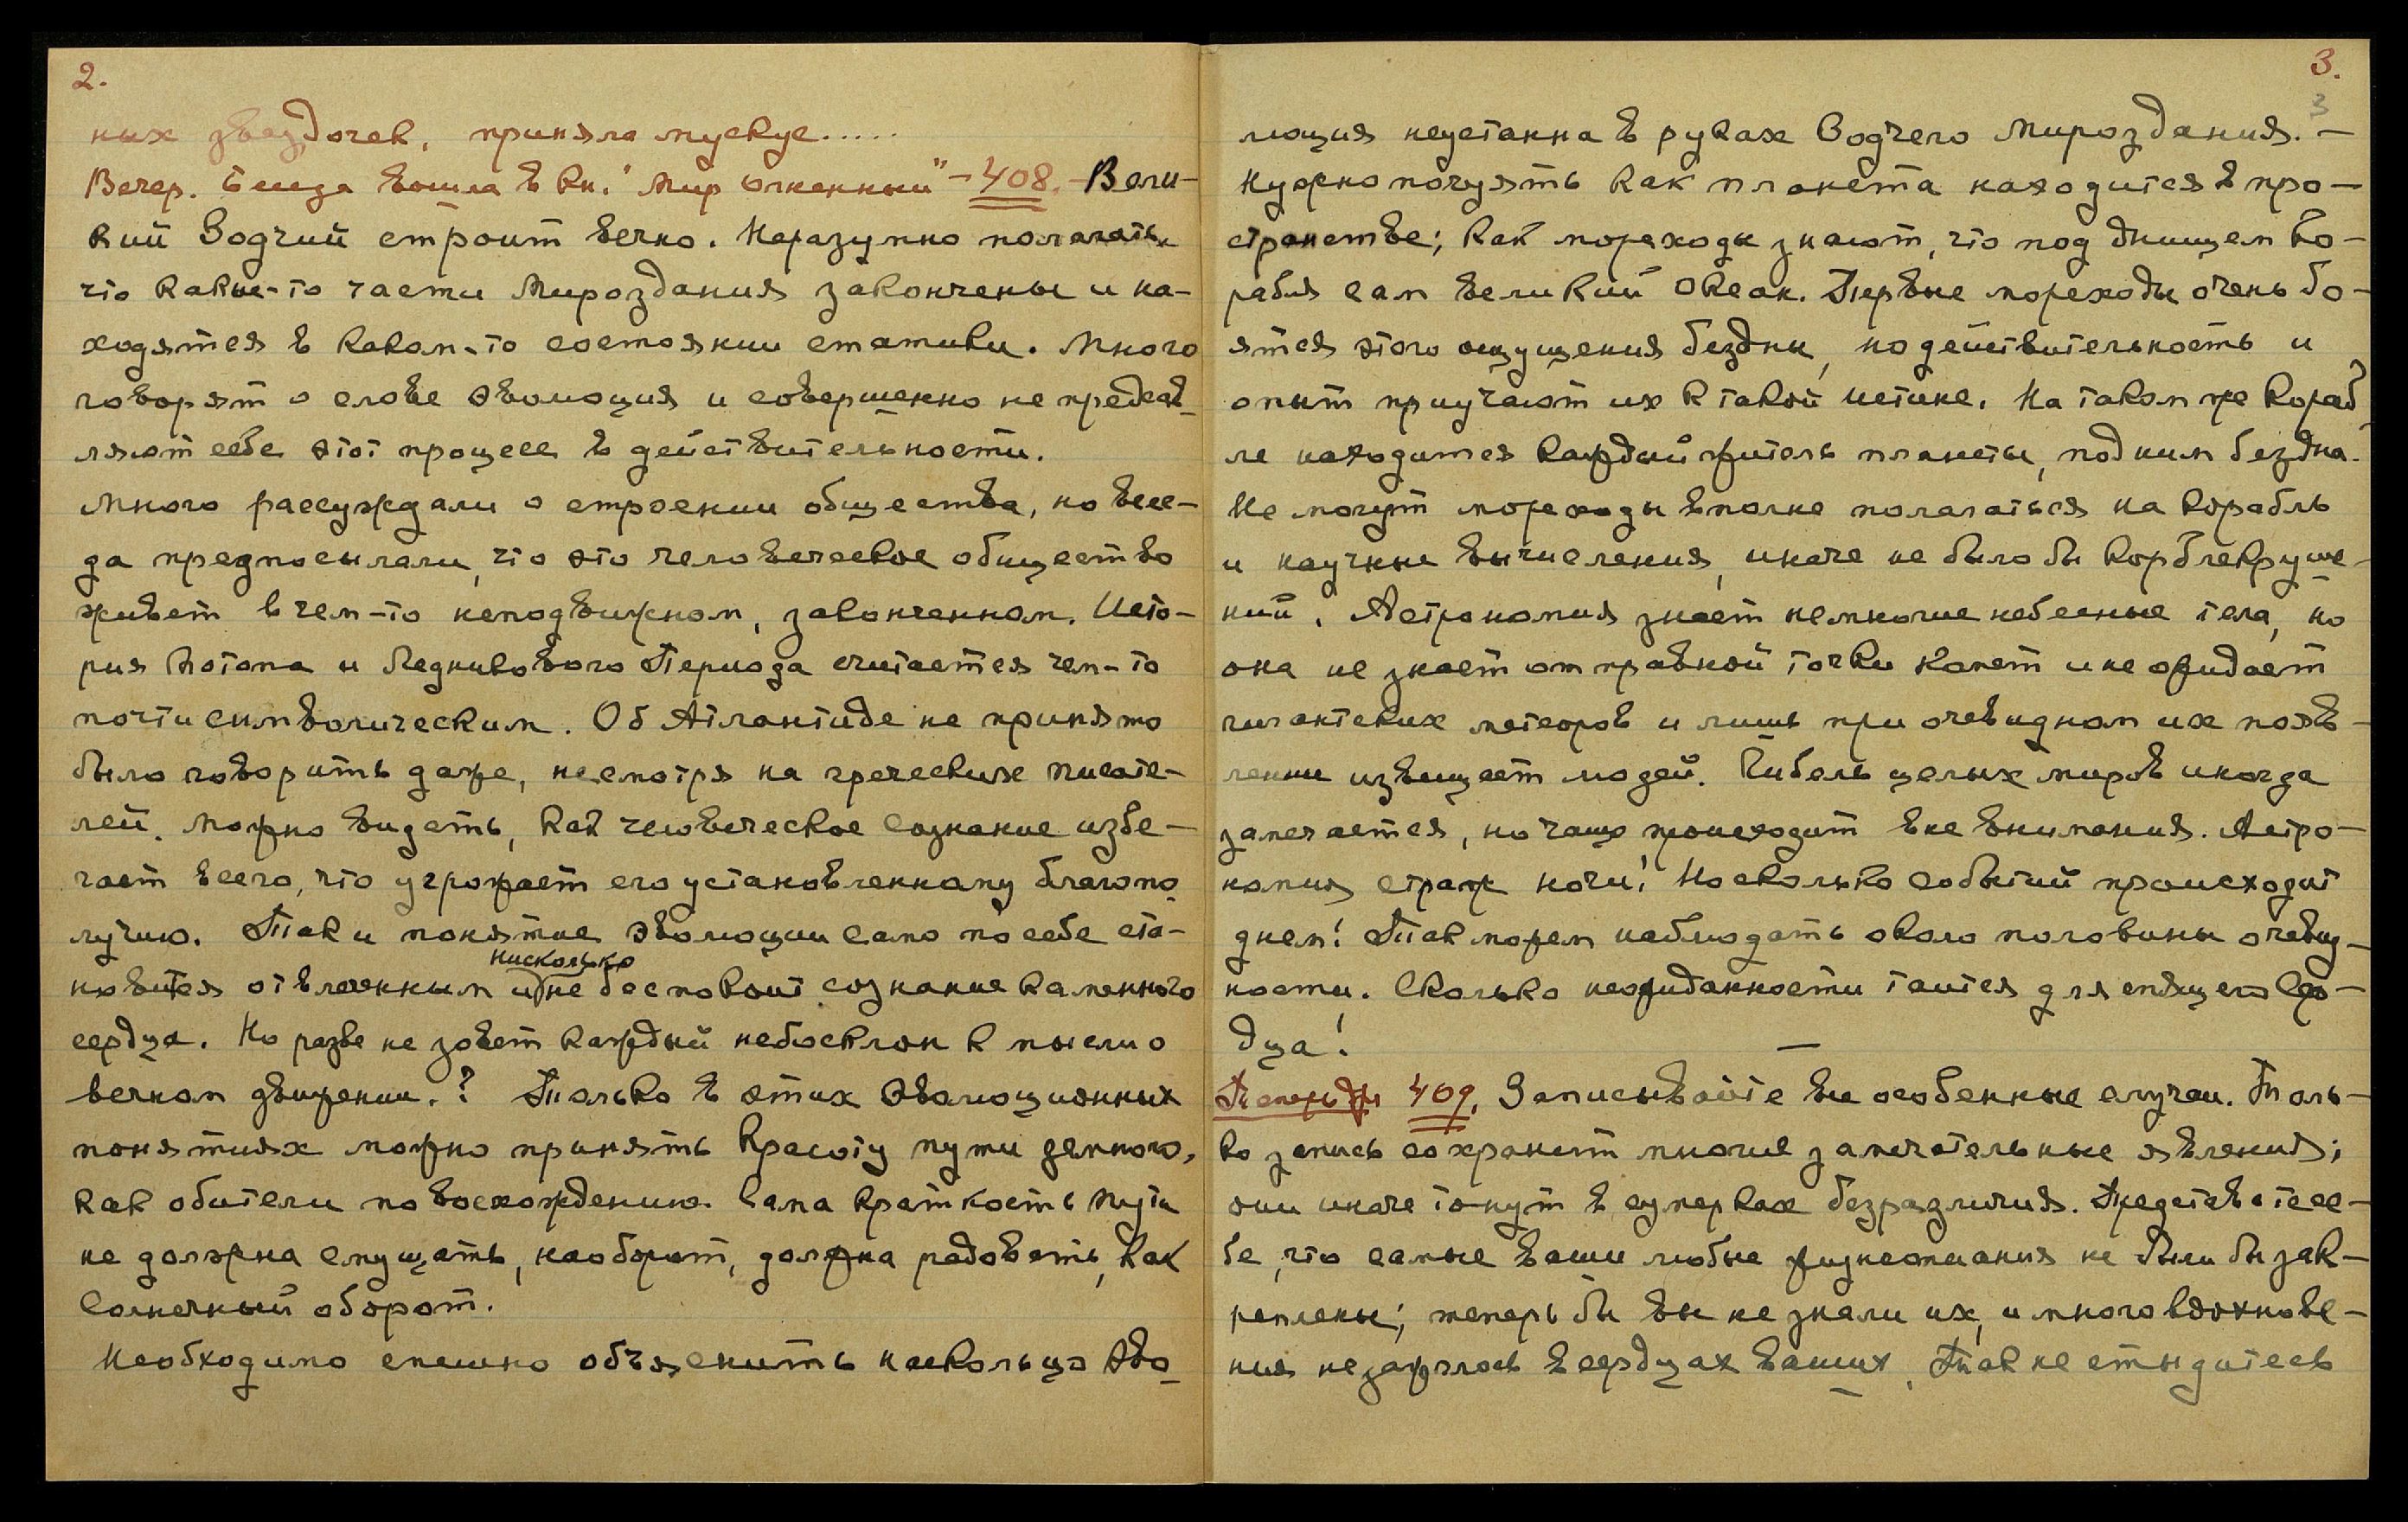 2.
ных звездочек, приняла мускус.....
Вечер. Беседа вошла в кн. "Мир Огненный" - 408. - Вели-
кий Зодчий строит вечно. Неразумно полагать
что какие-то части Мироздания закончены и на-
ходятся в каком-то состоянии статики. Много
говорят о слове эволюция и совершенно не представ-
ляют себе этот процесс в действительности.
Много рассуждали о строении общества, но всег-
да предпосылали, что это человеческое общество
живет в чем-то неподвижном, законченном. Исто-
рия Потопа и Ледникового Периода считается чем-то
почти символическим. Об Атлантиде не принято
было говорить даже, несмотря на греческих писате-
лей. Можно видеть, как человеческое сознание избе-
гает всего, что угрожает его установленному благопо-
лучию. Так и понятие эволюции само по себе ста-
нисколько
новится отвлеченным и не беспокоит сознание каменного
сердца. Но разве не зовет каждый небосклон к мысли о
вечном движении.? Только в этих эволюционных
понятиях можно принять красоту пути земного,
как обители по восхождению. Сама краткость пути
не должна смущать, наоборот, должна радовать, как
Солнечный оборот.
Необходимо спешно объяснить насколько эво-
3.
3
люция неустанна в руках Зодчего Мироздания. -
Нужно почуять как планета находится в про-
странстве; как мореходы знают, что под днищем ко-
рабля сам великий Океан. Первые мореходы очень бо-
ятся этого ощущения бездны, но действительность и
опыт приучают их к такой истине. На таком же кораб-
ле находится каждый житель планеты, под ним бездна.
Не могут мореходы вполне полагаться на корабль
и научные вычисления, иначе не было бы корблекруше-
ний. Астрономия знает немногие небесные тела, но
она не знает отправной точки комет и не ожидает
гигантских метеоров и лишь при очевидном их появ-
лении извещает людей. Гибель целых миров иногда
замечается, но чаще происходит вне внимания. Астро-
номия страж ночи! Но сколько событий происходит
днем! Так можем наблюдать около половины очевид-
ности. Сколько неожиданности таится для спящего Сер-
дца!
409. Записывайте все особенные случаи. Толь-
ко запись сохранит многие замечательные явления;
они иначе тонут в сумерках безразличия. Представьте се-
бе, что самые ваши любые жизнеописания не были бы зак-
реплены; теперь бы вы не знали их, и много вдохнове-
ния не зажглось в сердцах ваших. Так не стыдитесь